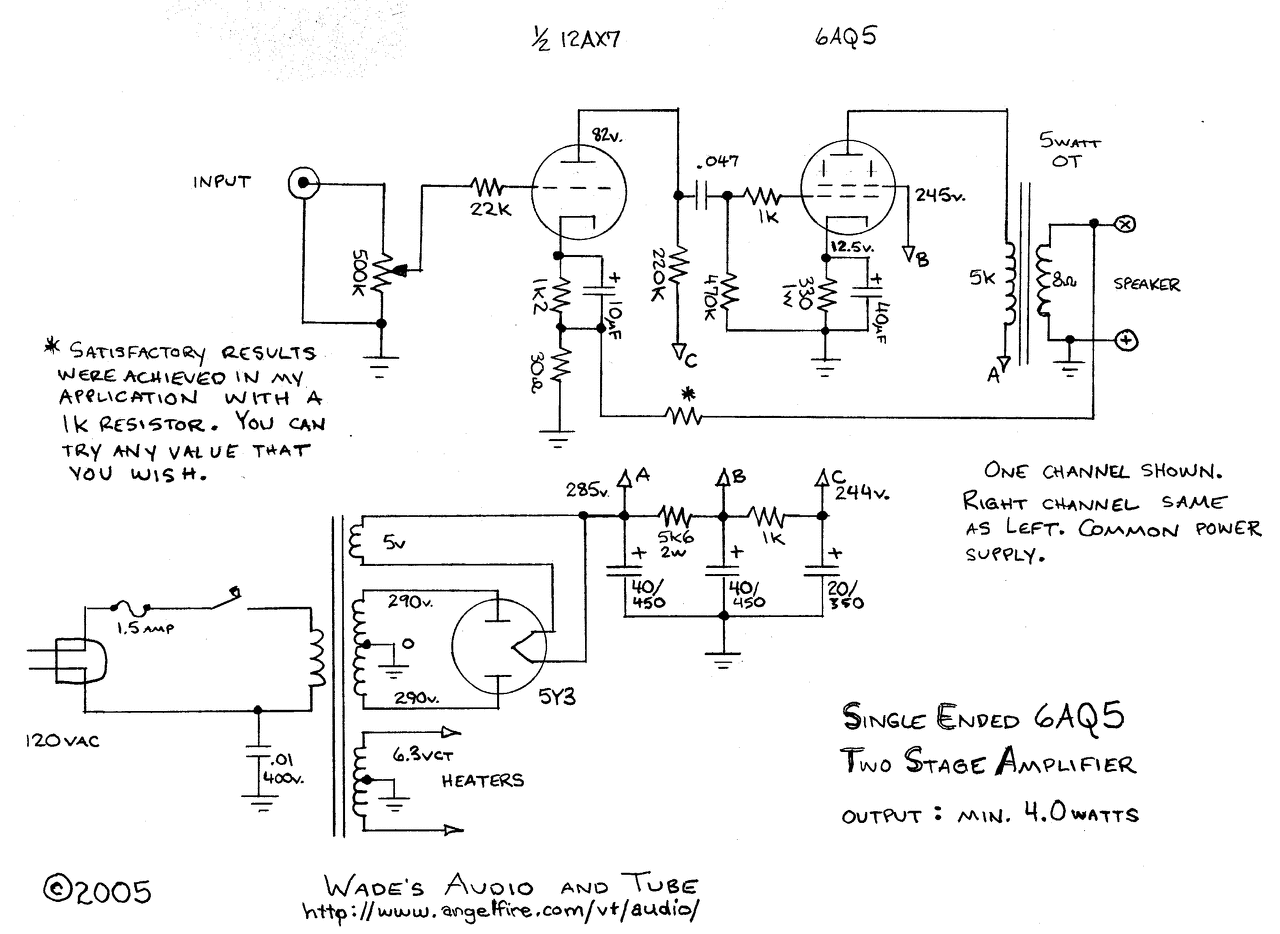 ½ 12AX7
6AQ5
82v.
.047
5 WATT
OT
INPUT
22K
1K
245v.
12.5v.
B
500K
1K2
+
10µF
220K
470K
330
1W
+
40µF
5K
8Ω
SPEAKER
X
+
C
A
30Ω
*
* SATISFACTORY RESULTS
WERE ACHIEVED IN MY
APPLICATION WITH A
1K RESISTOR. YOU CAN
TRY ANY VALUE THAT
YOU WISH.
ONE CHANNEL SHOWN.
RIGHT CHANNEL SAME
AS LEFT. COMMON POWER
SUPPLY.
285v.
A
B
C
244v.
5v
5K6
2W
1K
+
40/
450
+
40/
450
+
20/
350
1.5 AMP
290v.
0
290v.
5Y3
120VAC
.01
400v.
6.3VCT
HEATERS
SINGLE ENDED 6AQ5
TWO STAGE AMPLIFIER
OUTPUT : MIN. 4.0 WATTS
©2005
WADE'S AUDIO AND TUBE
http://www.angelfire.com/vt/audio/